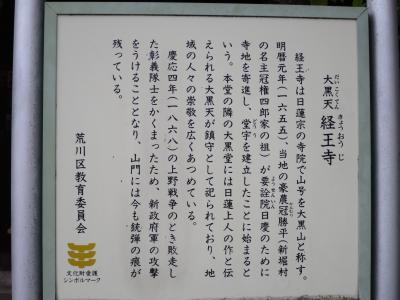 だいこくてん
大黒天
きょうおうじ
経王寺
経王寺は日蓮宗の寺院で山号を大黒山と称す。
明暦元年(一六五五)、当地の豪農冠勝平(新堀村
の名主冠権四郎家の祖)が要詮院日慶のために
ようせんいん
寺地を寄進し、堂宇を建立したことに始まると
どうう
いう。本堂の隣の大黒堂には日蓮上人の作と伝
えられる大黒天が鎮守として祀られており、地
域の人々の崇敬を広くあつめている。
慶応四年(一八六八)の上野戦争のとき敗走し
た彰義隊士をかくまったため、新政府軍の攻撃
をうけることとなり、山門には今も銃弾の痕が
残っている。
荒川区教育委員会
文化財愛護
シンボルマーク